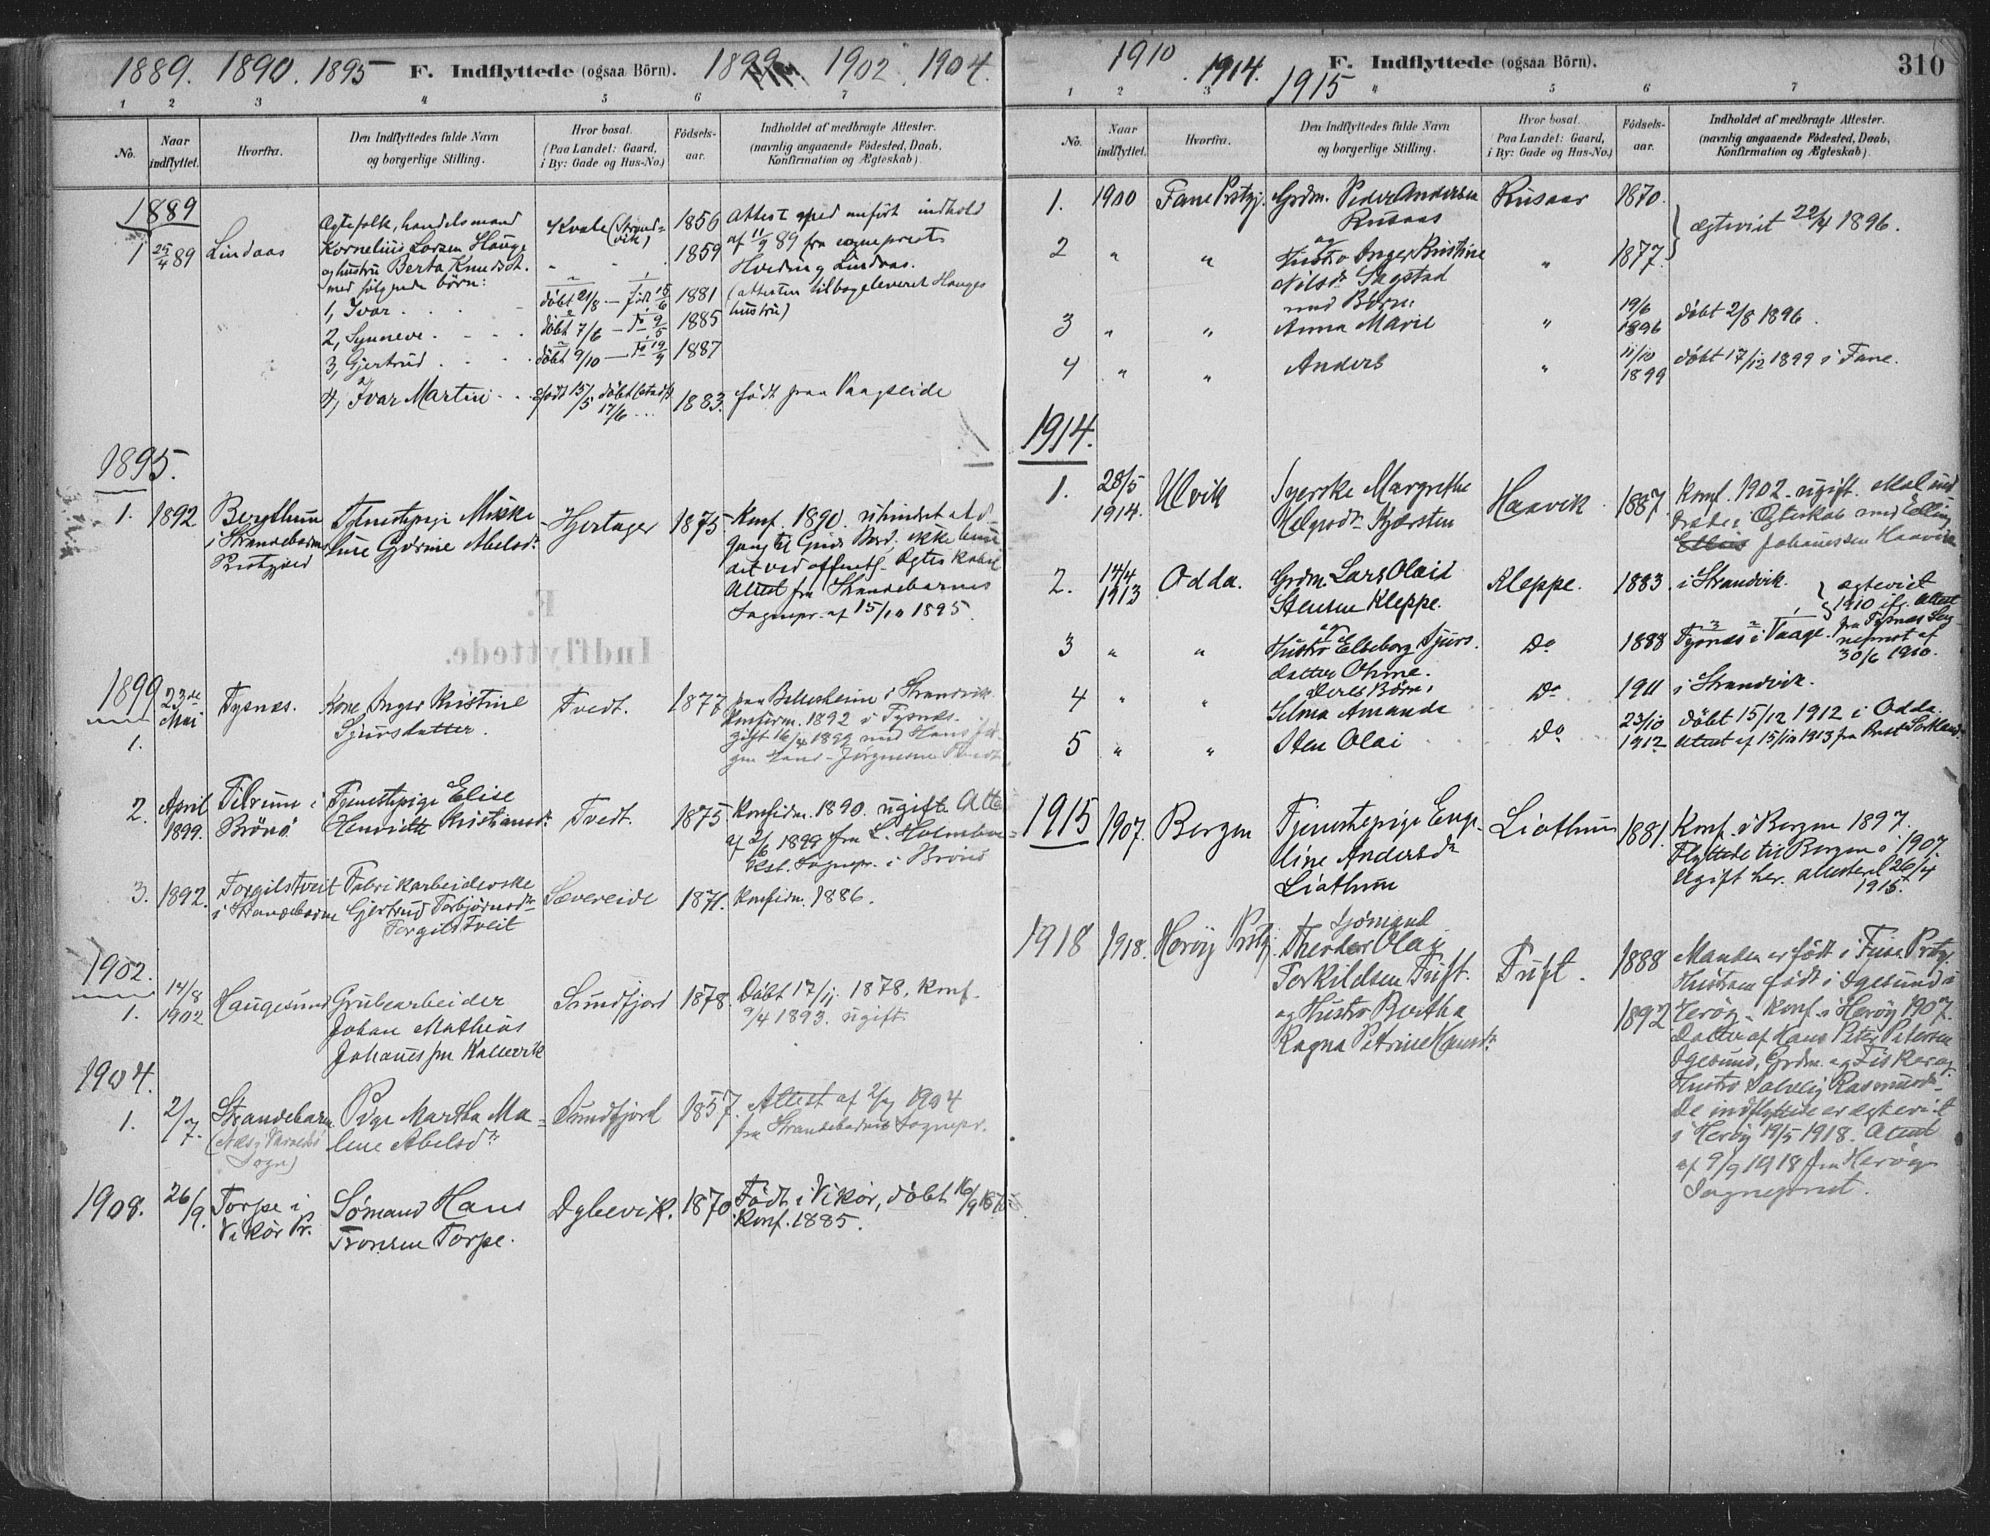 1889. 1890. 1895 F. Indflyttede (ogsaa Börn). 1899 1902 1904.
1 2 3 4 5 6 7
No.
Naar indflyttet.
Hvorfra.
Den Indflyttedes fulde Navn
og borgerlige Stilling.
Hvor bosat.
(Paa Landet: Gaard,
i By: Gade og Hus-No.)
Födsels-
aar.
Indholdet af medbragte Attester.
(navnlig angaaende Födested, Daab,
Konfirmation og Ægteskab)
1889
1 25/4 89 Lindaas
Ægtefolk, handelsmand
Kornelius Larsen Hauge
og hustru Berta Knudsdt.
med følgende börn:
1, Ivar
2, Synneve
3, Gjertrud
4, Ivar Martin
Kvale (Strand=
vik)
döbt 21/8 – født 15/6
döbt 7/6
döbt 9/10
født 15/5 döbt
17/6
1856
1859
1881
1885
1887
1883.
Attest med anført indhold
af 11/9 89 fra sognepræst
Hvoding Lindaas.
(attesten tilbageleveret Hauges
hustru)
født paa Vaagseide
1895.
1. 1892
Berglhun
i Strandebarm
Prestgjeld
Tjenestepige Mikke
line Gjørine Abelsdr.
Hjertager
1875
Konf. 1890. uhindret Ad-
gang til Guds Bord, ikke bun
det ved offentl. Ægteskabsl.
Attest fra Strandebarms
Sognepr. af 15/10 1895.
F.
Indflyttede.
1899
1.
23de
Mai
Tysnæs.
Kone Inger Kristine
Sjursdatter.
Tvedt.
1877
paa Bellesheim i Strandvik
Konfirm. 1892 i Tysnæs.
gift 16/4 1899 med Hans
Jørgensen Tvedt
2. April
1899.
Tilrum i
Brönö
Tjenestepige Elise
Henriette Kristiansdr.
Tvedt.
1875
Konfirm. 1890. ugift. Atte
af 2/6 1899 fra L. Holmboe
Kst. Sognepr. i Brönö
3. 1892.
Torgilstveit
i Strandebarm
Fabrikarbeiderske
Gjertrud Torbjörnsdr.
Torgilstveit
Sævereide
1871.
Konfirm. 1886.
1902.
1.
14/8
1902
Haugesund
Grubearbeider
Johan Mathias
Johannessen Kallevik
Sundfjord
1878.
Døbt 17/11 1878, Konf.
9/4 1893. ugift
1904.
1. 2/7.
Strandebarm
Sogn)
Pige Martha Ma=
lene Abelsdr.
Sundfjord
1857.
Attest af 2/7 1904
fra Strandebarms Sognepr.
1908. 26/9.
Torpe i
Vikör Pr.
Sømand Hans
Tronsen Torpe.
Dybevik.
1870
Født i Vikör, döbt
Konf. 1885.
1910 1914. 1915 F. Indflyttede (ogsaa Börn). 310
1 2 3 4 5 6 7
No.
Naar
indflyttet.
Hvorfra.
Den Indflyttedes fulde Navn
og borgerlige Stilling.
Hvor bosat.
(Paa Landet: Gaard,
i By: Gade og Hus-No.)
Födsels-
aar.
Indholdet af medbragte Attester.
(navnlig angaaende Födested, Daab,
Konfirmation og Ægteskab)
1. 1900 Fane Prstgj.
Grdm. Peder Andersen
Rusaas
Rusaas
1870.
ægteviet 22/4 1896.
2 " "
og
Hustro Inger Kristine
Nilsdr. Sagstad
"
1877.
med Börn:
3 " " Anna Marie "
19/6
1896
döbt 2/8 1896.
4 " " Anders "
11/10
1899
döbt 17/12 1899 i Fane.
1914.
1. 28/5
1914.
Ulvik
Syerske Margrethe
Helgesdr. Kjærsten
Haavik
1887.
Konf. 1902. ugift.
Ægteskab med Elling
Johannesen Haavik
2. 14/4
1913
Odda.
Grdm. Lars Olai
Stensen Kleppe.
Kleppe.
1883
i Strandvik.
ægteviet
1910 ifg. Attest
fra Tysnæs Sog
neprest af
30/6 1910.
3 " "
og
Hustro Elseborg Sjurs
datter Ohme.
Do
1888
Tysnæs i Vaage.
Deres Børn:
4 " " Selma Amanda Do 1911 i Strandvik.
5 " " Sten Olai Do
23/10
1912
döbt 15/12 1912 i Odda.
Attest af 15/10 1913 fra Prest
1915
1907. Bergen
Tjenestepige Enge-
line Andersdr.
Liathun
Liathun
1881.
Konf. i Bergen 1897.
Flyttede til Bergen i 1907
Ugift her. Attesteret 26/4
1915.
1918 1918. Herøy Prstgj.
Sjømand
Theodor Olai
Torkildsen Tuft.
og Hustro Bertha
Ragna Petrine Hansdr.
Tuft.
1888
1892
Manden er født i Fuse Prstgj.
Hustruen født i Igesund i
Herøy. Konf. i Herøy 1907.
Datter af Hans Peter Petersen
Igesund, Grdm. og Fisker og
Hustro Solveig Rasmusdr.
De indflyttede er ægteviet
i Herøy 19/5 1918. Attest
af 9/9 1918 fra Herøy
Sogneprest.